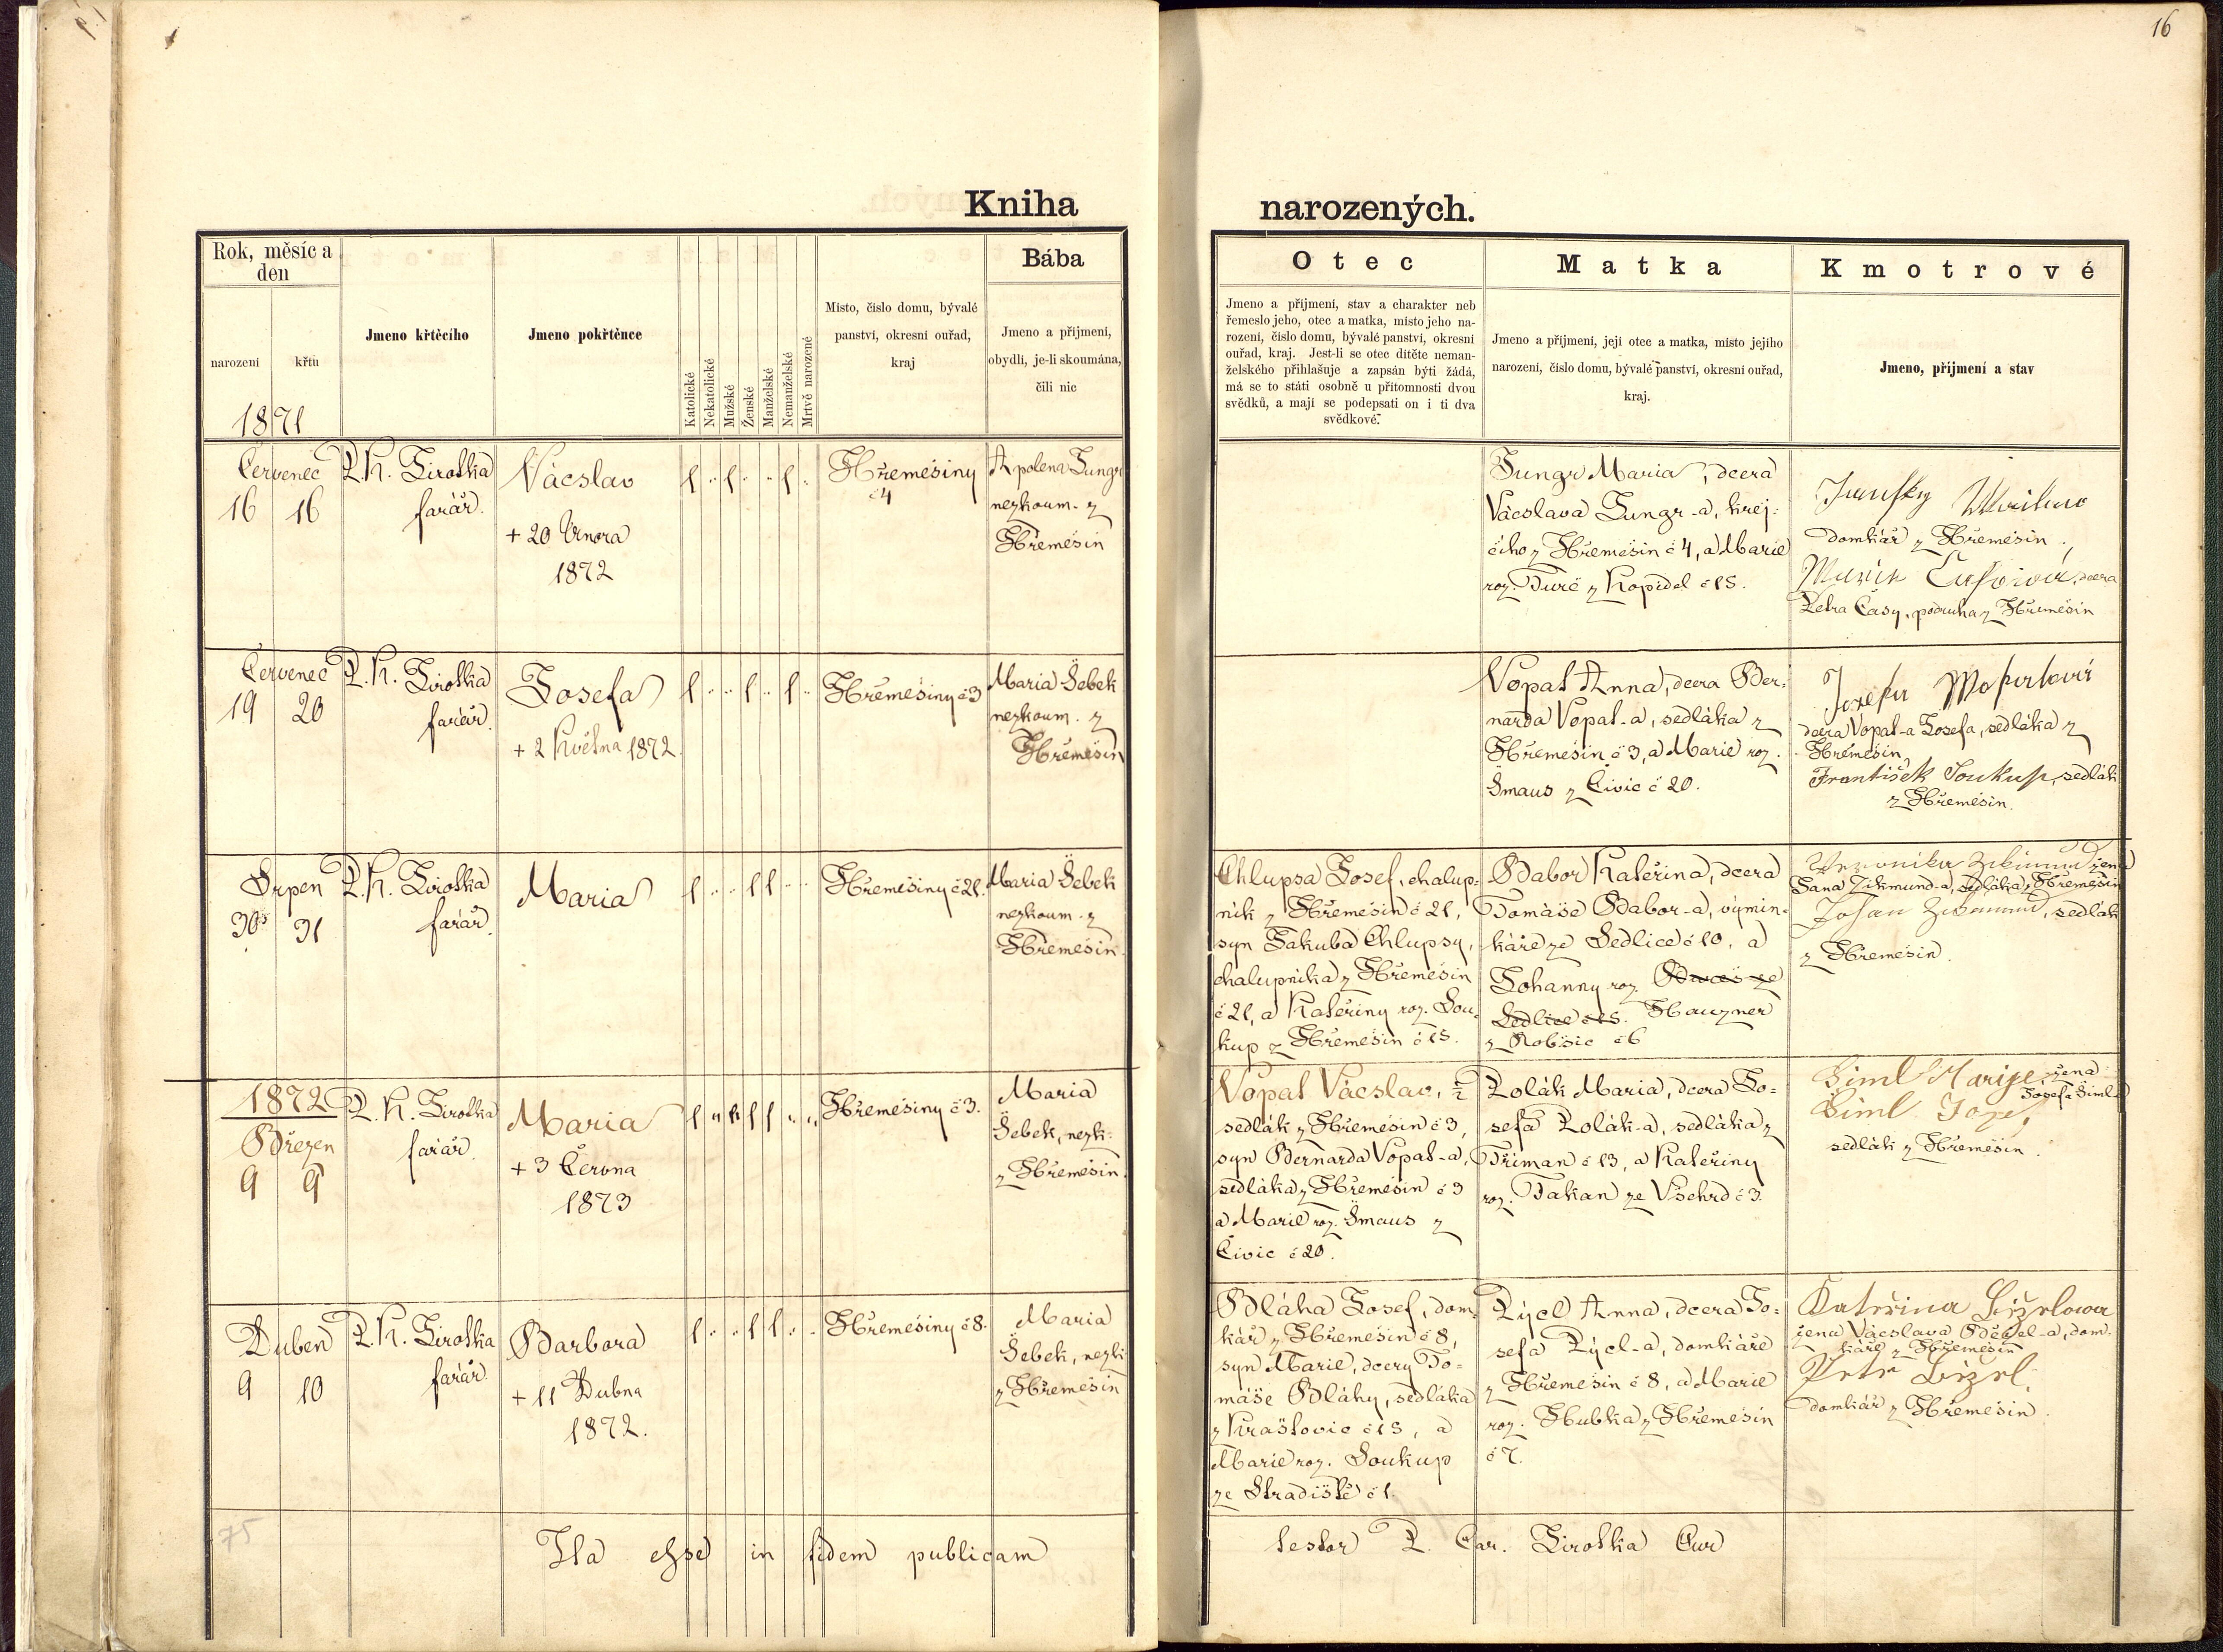 16
Kniha
narozených.
Rok, měsíc a
den
narození
křtu
1871
Jmeno křtěcího
Jmeno pokřtěnce
Katolické
Nekatolické
Mužské
Ženské
Manželské
Nemanželské
Mrtvě narozené
Místo, číslo domu, bývalé
panství, okresní ouřad,
kraj
Bába
Jmeno a příjmení,
obydlí, je-li skoumána,
čili nic
Otec
Jmeno a příjmení, stav a charakter neb
řemeslo jeho, otec a matka, místo jeho na-
rození, číslo domu, bývalé panství, okresní
ouřad, kraj. Jest-li se otec dítěte neman-
želského přihlašuje a zapsán býti žádá,
má se to státi osobně u přítomnosti dvou
svědků, a mají se podepsati on i ti dva
svědkové.
Matka
Jmeno a příjmení, její otec a matka, místo jejího
narození, číslo domu, bývalé panství, okresní ouřad,
kraj.
Kmotrové
Jmeno, příjmení a stav
Červenec
16 16
P. K. Sirotka
farář.
Vácslav
+ 20 Února
1872
Hřemešiny
č 4
Apolena Jungr
nezkoum. z
Hřemešin
Jungr Maria, dcera
Vácslava Jungr-a, krej-
čího z Hřemešin č 4, a Marie
roz. Turč z Kopidel č 15.
domkář z Hřemešin,
dcera
Petra Časy, podruha z Hřemešin
Červenec
19 20
P. K. Sirotka
farář.
Josefa
+ 2 Května 1872.
Hřemešiny č 3
Maria Šebek
nezkoum. z
Hřemešin
Vopat Anna, dcera Ber-
narda Vopat-a, sedláka z
Hřemešin č 3, a Marie roz.
Šmaus z Čivic č 20.
dcera Vopat-a Josefa, sedláka z
Hřemešin,
František Soukup, sedlák
z Hřemešin.
Srpen
30 31
P. K. Sirotka
farář.
Maria
Hřemešiny č 21.
Maria Šebek
nezkoum. z
Hřemešin.
Chlupsa Josef, chalup-
ník z Hřemešin č 21,
syn Jakuba Chlupsy,
chalupníka z Hřemešin
č 21, a Kateřiny roz. Sou-
kup z Hřemešin č 15.
Babor Kateřina, dcera
Tomáše Babor-a, výmin-
káře ze Sedlice č 10, a
Johanny roz.
Sedlice č 15. Hauzner
z Robšic č 6
Veronika Zikmund žena
Jana Zikmund-a, sedláka z Hřemešin
Johan Zikmund, sedlák
z Hřemešin.
1872
Březen
9 9
P. K. Sirotka
farář.
Maria
+ 3 Června
1873
Hřemešiny č 3.
Maria
Šebek, nezk.
z Hřemešin.
Vopat Vácslav, ½
sedlák z Hřemešin č 3,
syn Bernarda Vopat-a,
sedláka z Hřemešin č 3
a Marie roz. Šmaus z
Čivic č 20.
Polák Maria, dcera Jo-
sefa Polák-a, sedláka z
Třiman č 13, a Kateřiny
roz. Takan ze Všehrd č 3.
Šiml Marije, žena
Josefa Šiml-a
Šiml Jozef,
sedlák z Hřemešin.
Duben
9 10
P. K. Sirotka
farář.
Barbora
+ 11 Dubna
1872.
Hřemešiny č 8.
Maria
Šebek, nezk.
z Hřemešin
Bláha Josef, dom-
kář z Hřemešin č 8,
syn Marie, dcery To-
máše Bláhy, sedláka
z Kraštovic č 13, a
Marie roz. Soukup
ze Stradiště č 1.
Pýcl Anna, dcera Jo-
sefa Pýcl-a, domkáře
z Hřemešin č 8, a Marie
roz. Hubka z Hřemešin
č 7.
Kateřina
žena Vácslava dom-
káře z Hřemešin
Petr
domkář z Hřemešin.
75
Ita esse in fidem publicam
testor P. Car. Sirotka Cur